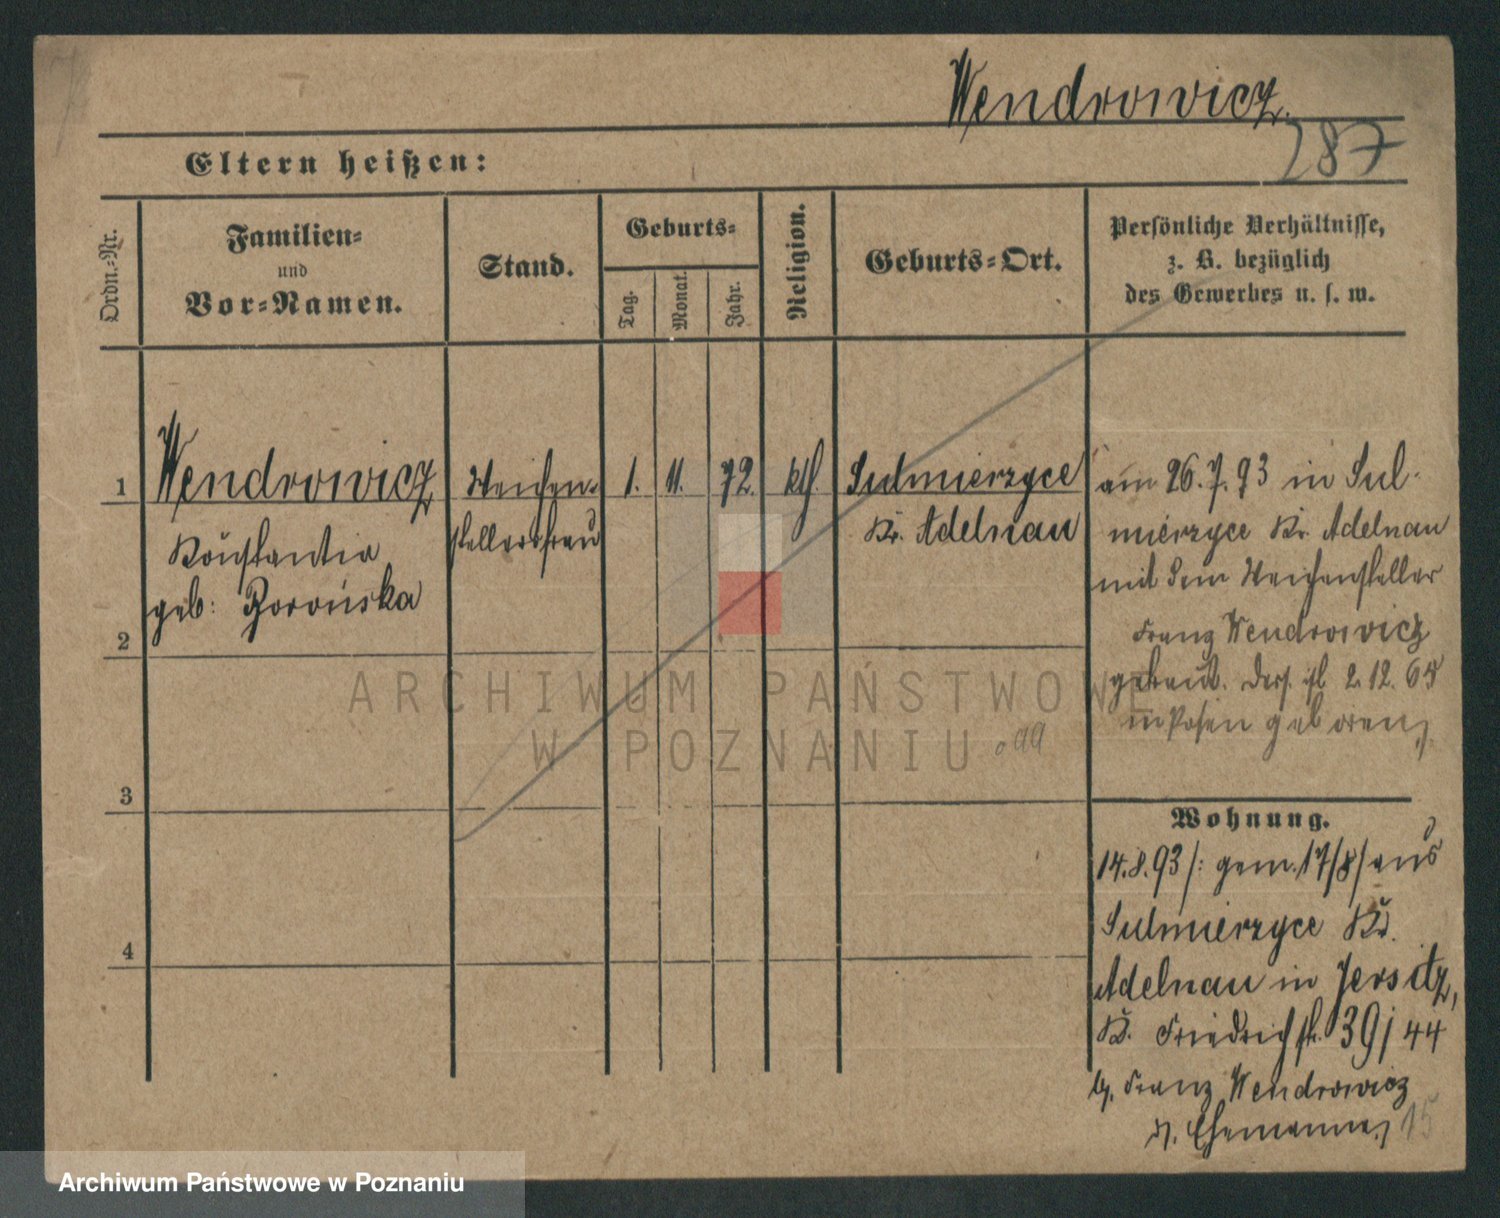 Wendrowicz.
287
Eltern heißen:
Ordn.-Nr.
Familien-
und
Vor-Namen.
Stand.
Geburts-
Tag.
Monat.
Jahr.
Religion.
Geburts-Ort.
Persönliche Verhältnisse,
z. B. bezüglich
des Gewerbes u. s. w.
1
Wendrowicz
Konstantia
geb:
Weichen-
stellersfrau
1. 11. 72.
kth.
Sulmierzyce
Kr. Adelnau
am 26.7.93 in Sul-
mierzyce Kr. Adelnau
mit dem Weichensteller
Franz Wendrowicz
getraut. Ders. ist 2.12.65
in Posen geboren,
2
3
4
Wohnung.
14.8.93/: gem. 17/8/ aus
Sulmierzyce Kr.
Adelnau in Jersitz,
Kr. Friedrichstr. 39/44
b. Franz Wendrowicz
d. Ehemanne,
15
ARCHIWUM PAŃSTWOWE
W POZNANIU
Archiwum Państwowe w Poznaniu